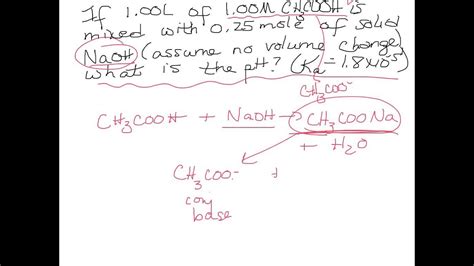 If 1.00L of 1.00M CH3COOH is
mixed with 0.25mole of solid
NaOH (assume no volume change)
what is the pH? (Ka=1.8x10-5)
CH3COO-
CH3COOH + NaOH → CH3COONa
+ H2O
CH3COO- +
conj
base